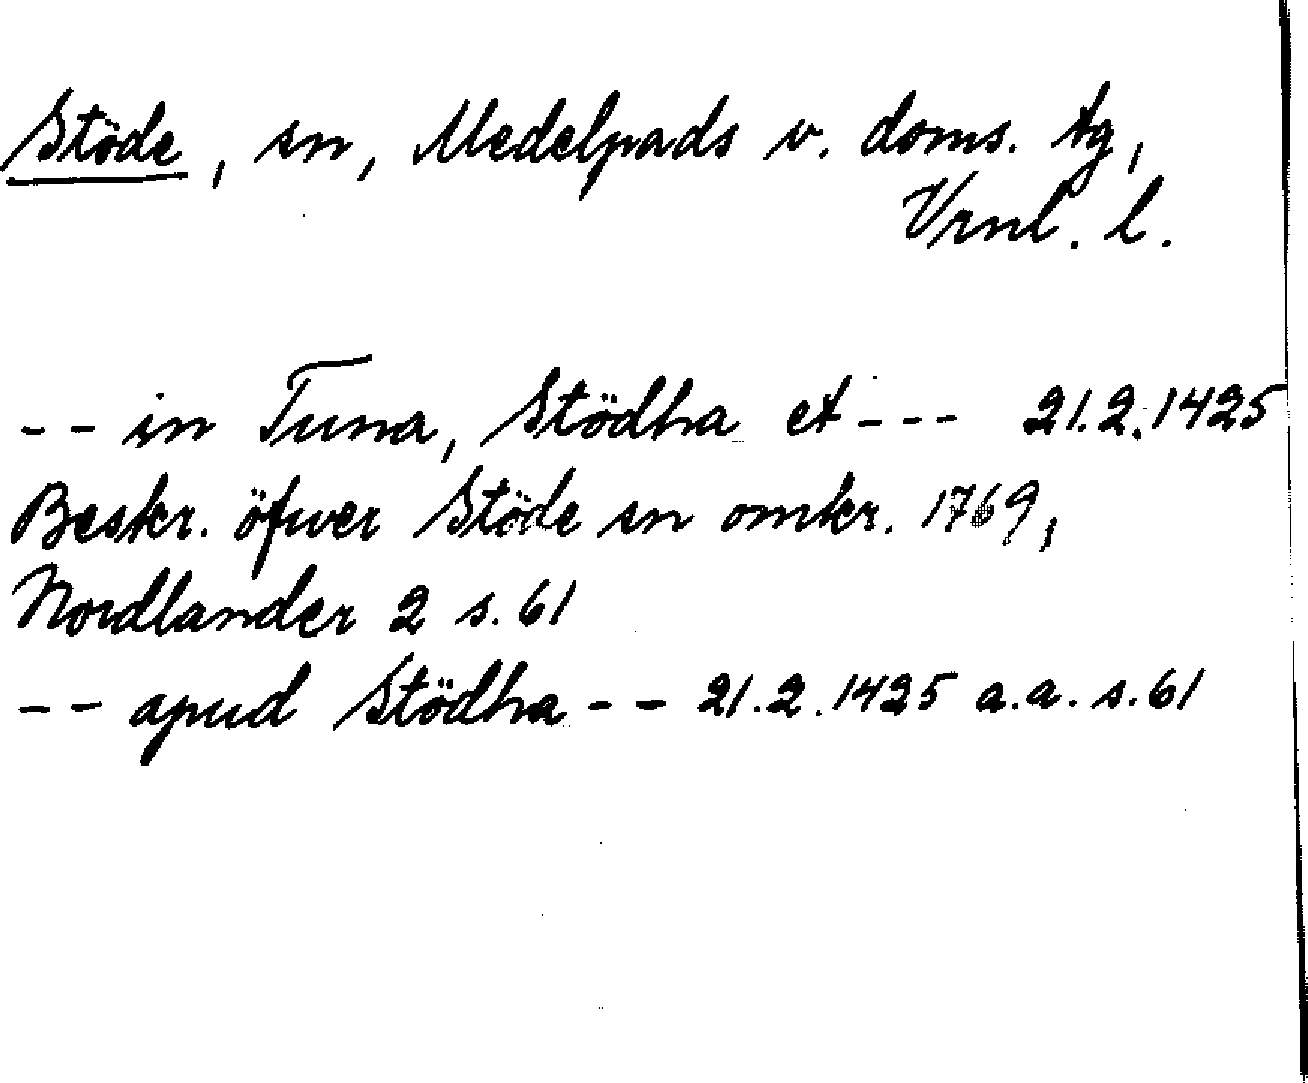 Stöde, sn, Medelpads v. doms. tg,
Vrnl. l.
-- in Tuna, Stödha et --- 21.2.1425
Beskr. öfwer Stöde sn omkr. 1769,
Nordlander 2 s. 61
-- apud Stödha -- 21.2.1425 a.a. s. 61